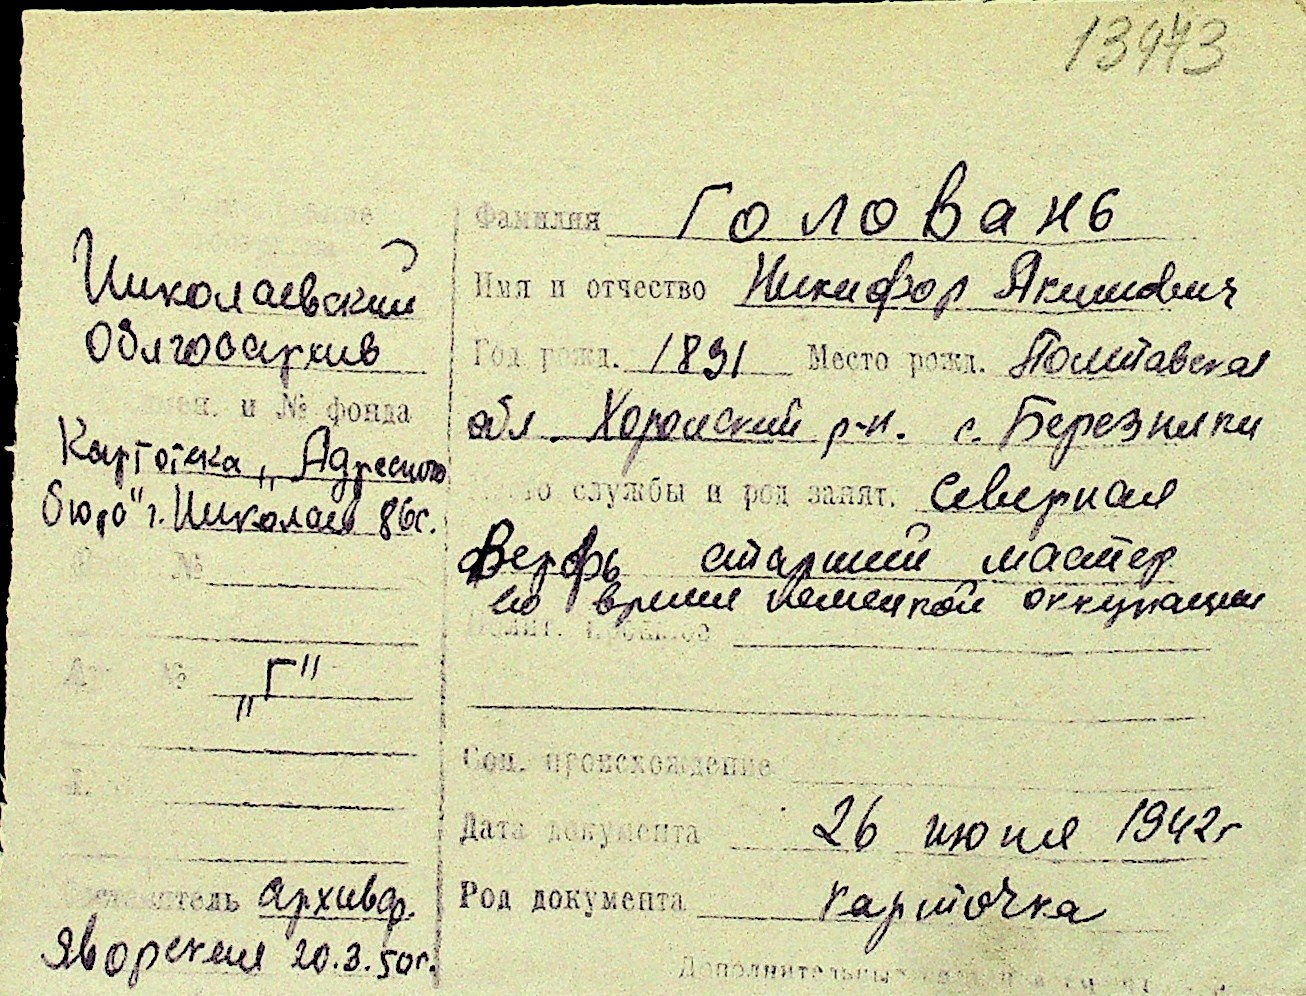 13973
Николаевский
Облгосархив
и № фонда
Картотека „Адресного
бюро" г. Николаев 86с.
№
№ „Г"
Составитель архивф.
Яворская 20.3.50г.
Фамилия Головань
Имя и отчество Никифор Якимович
Год рожд. 1891 Место рожд. Полтавская
обл. Хорольский р-н. с. Березняки
Место службы и род занят. Северная
Верфь старший мастер
во время немецкой оккупации
Полит. прошлое
Соц. происхождение
Дата документа 26 июня 1942г
Род документа карточка
Дополнительные